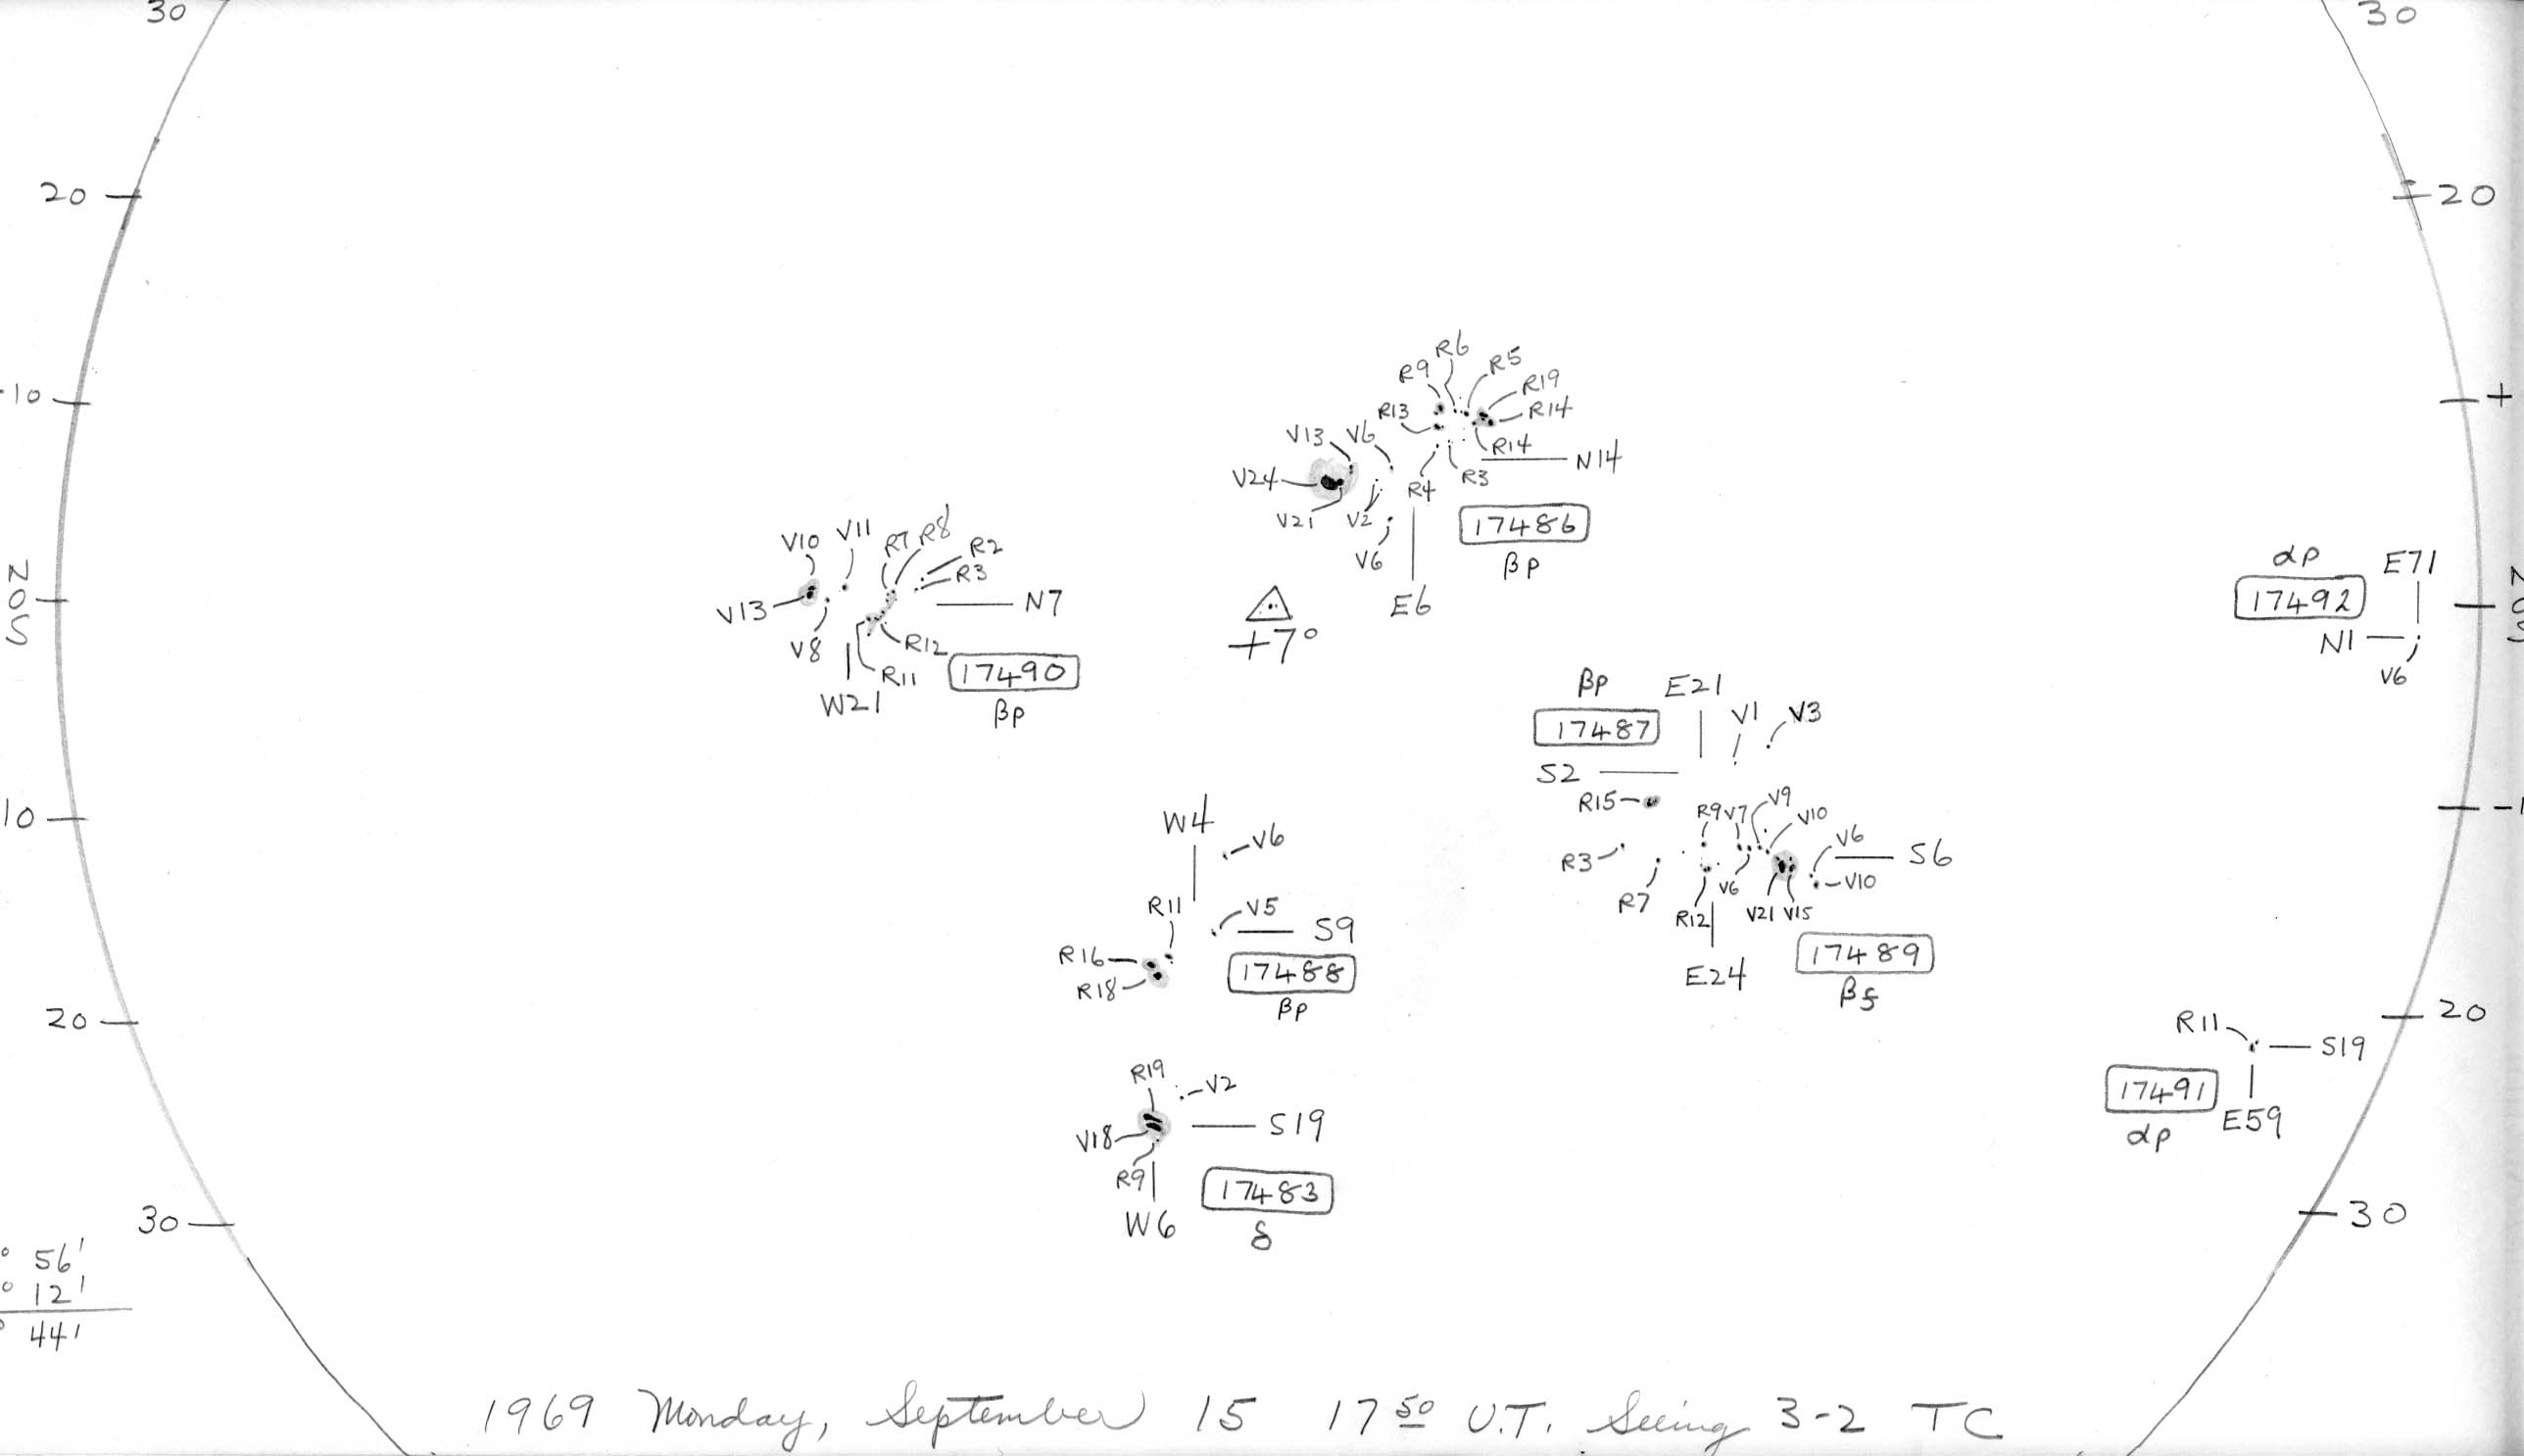 30
30
20
20
10
+
R6
R9
R5
R19
R13
R14
V13
V6
R14
N14
V24
R3
R4
V21
V2
17486
V6
βp
E6
V10
V11
R7
R8
R2
R3
V13
N7
V8
R12
R11
17490
W21
βp
+7°
N
O
S
αp
E71
17492
N1
V6
N
S
βp
E21
17487
V1
V3
S2
R15
R9
V7
V9
V10
V6
S6
R3
V10
R7
V6
R12
V21
V15
17489
E24
βf
10
-1
W4
V6
R11
V5
S9
R16
17488
R18
βp
20
20
R11
S19
17491
E59
αp
R19
V2
V18
S19
R9
17483
W6
δ
30
30
° 56'
° 12'
° 44'
1969 Monday, September 15 17 50 U.T. Seeing 3-2 TC